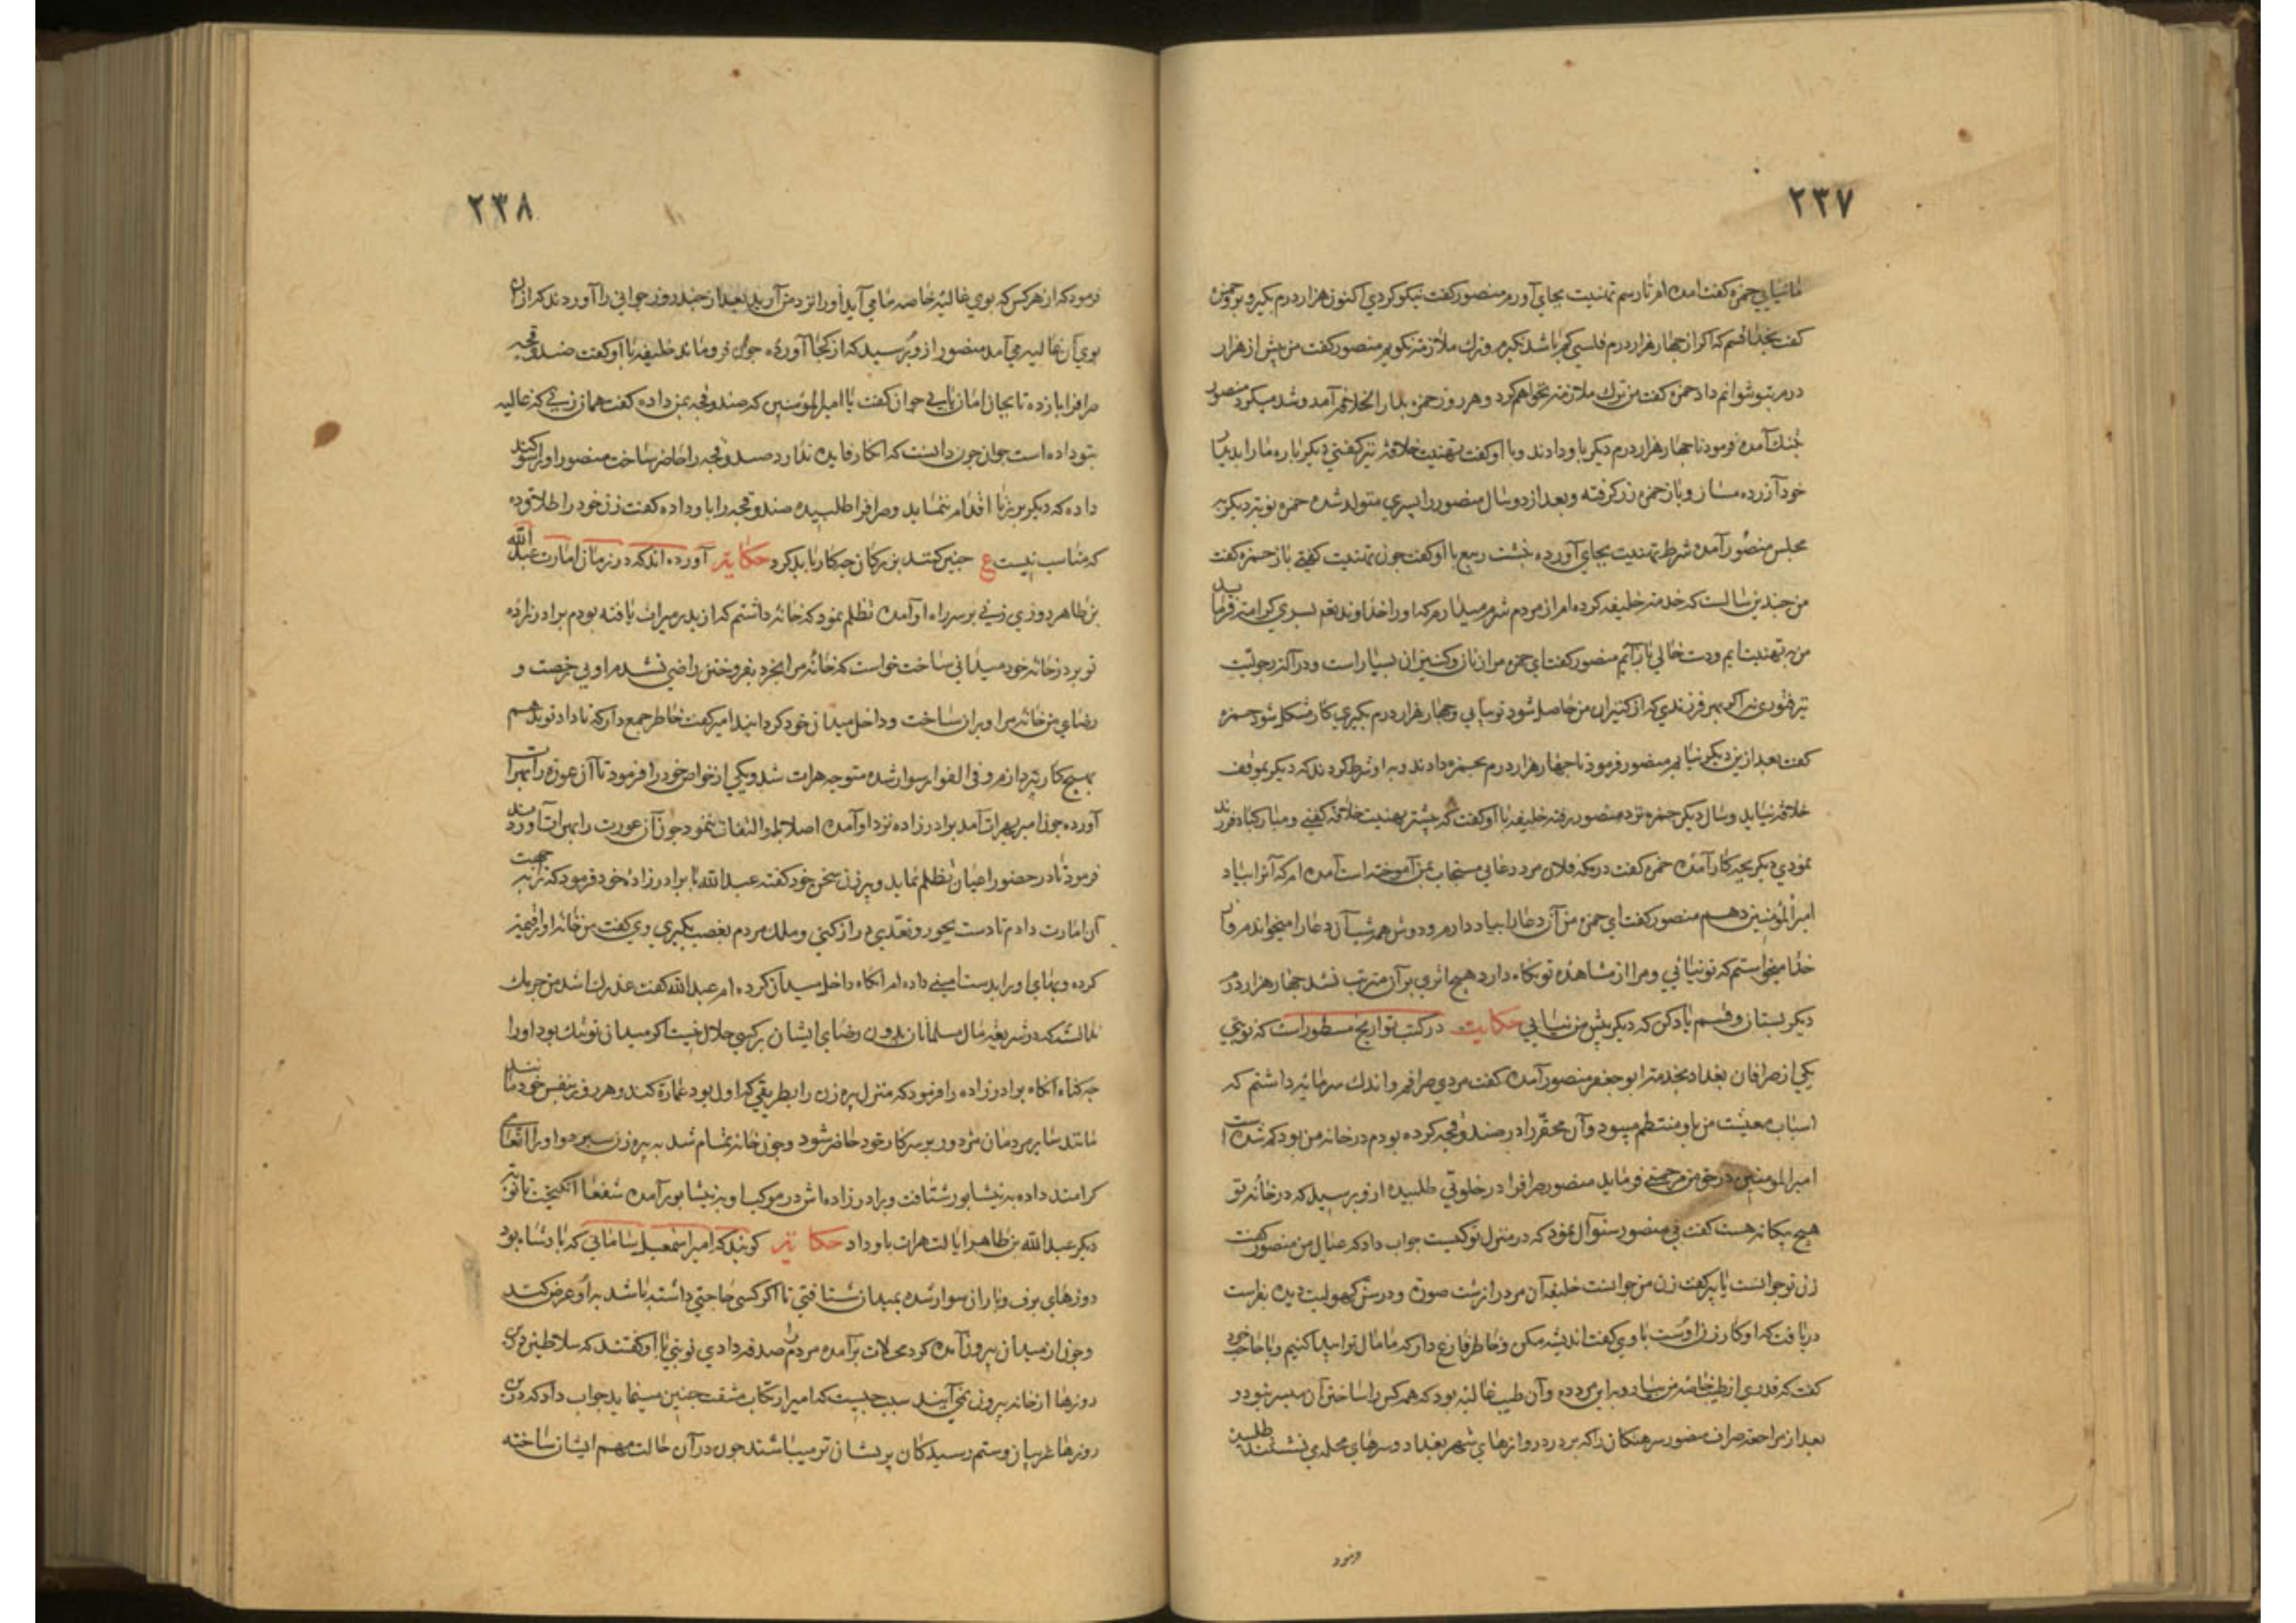 ٢٣٧
ما نیایی حمزه کفت امده ام تا رسم تهنیت بجای آورم منصور کفت نیکو کردی اکنون هزار درم بکیر و برو حمزه
کفت بخدا قسم که اکر از جهار هزار درم فلسی کم باشد نکیرم و ترك ملازمت نکویم منصور کفت من بیش از هزار
درم بتو نتوانم داد حمزه کفت من ترك ملازمت نخواهم کرد و هر روز حمزه بدار الخلافه آمد و شد میکرد منصور
بتنك آمده فرمود تا جهار هزار درم دیکر باو دادند و با او کفت تهنیت خلافت نیز کفتی دیکر باره ما را بدیدن
خود آزرده مساز و باز حمزه زر کرفته و بعد از دو سال منصور را پسری متولد شده حمزه نوبت دیکر به
مجلس منصور آمده شرط تهنیت بجای آورده بنشست ربیع با او کفت جون تهنیت کفتی باز حمزه کفت
من جندین سالست که خدمت خلیفه کرده ام از مردم شرم میدارم که او را خداوند تعم پسری کرامت فرماید
من به تهنیت ایم و دست خالی باز آیم منصور کفت ای حمزه مرا زنان و کنیزان بسیار است و در آلت رجولیت
نیز فتوری نه اکر بهر فرزندی که از کنیزان من حاصل شود تو بیایی و جهار هزار درم بکیری کار مشکل شود حمزه
کفت بعد ازین دیکر نیایم منصور فرمود تا جهار هزار درم بحمزه دادند و با او شرط کردند که دیکر بموقف
خلافت نیاید و سال دیکر حمزه نزد منصور رفته خلیفه با او کفت که پیشتر تهنیت خلافت کفتی و مبارکباد فرزند
نمودی دیکر بجه کار آمده حمزه کفت در مکه فلان مرد دعایی مستجاب بمن آموخته است آمده ام که آنرا بیاد
امیر المؤمنین دهم منصور کفت ای حمزه من آن دعا را بیاد دارم و دوش همه شب آن دعا را میخواندم و از
خدا میخواستم که تو نیائی و مرا از مشاهده تو نکاه دارد هیج اثری بر آن مترتب نشد جهار هزار درم
دیکر بستان و قسم یاد کن که دیکر پیش من نیایی حکایت در کتب تواریخ مسطور است که نوبتی
یکی از صرافان بغداد بخدمت ابو جعفر منصور آمده کفت مردی صرافم و اندك سرمایه داشتم که
اسباب معیشت من باو منتظم میبود و آن محقر را در صندوقجه کرده بودم در خانه من بود کم شده است
امیر المومنین در حق من مرحمتی فرماید منصور صراف را در خلوتی طلبیده از و پرسید که در خانه تو
هیج بیکانه هست کفت نی منصور سئوال نمود که در منزل تو کیست جواب داد که عیال من منصور کفت
زن تو جوانست یا پیر کفت زن من جوانست خلیفه آن مرد را زشت صورة و در سن کهولیت دیده بفراست
دریافت که او کار زن اوست با وی کفت اندیشه مکن و خاطر فارغ دار که ما مال ترا پیدا کنیم و با حاجب خود
کفت که قدری از طیب خاصه من بیار و به این مرد ده و آن طیب غالیه بود که همه کس را ساختن آن میسر نبود و
بعد از مراجعت صراف منصور سرهنکان را که بر در دروازهای شهر بغداد و سرهای محله می نشستند طلبیده
فرمود
٢٣٨
فرمود که از هر کس که بوی غالیه خاصه ما می آید اورا نزد من آرید بعد از جند روز جوانی را آوردند که از ان
بوی آن غالیه می آمد منصور از و پرسید که از کجا آورده جوان فرو ماند خلیفه با او کفت صندوقجه
صراف را باز ده تا بجان امان یابی جوان کفت یا امیر المؤمنین که صندوقجه بمن داده کفت همان زنی که غالیه
بتو داده است جوان جون دانست که انکار فایده ندارد صندوقجه را حاضر ساخت منصور اورا سوکند
داده که دیکر بر زنا اقدام ننماید و صراف را طلبیده صندوقجه را باو داده کفت زن خود را طلاق ده
که مناسب نیست ع جنین کنند بزرکان جه کار باید کرد حکایت آورده اند که در زمان امارت عبد الله
بن طاهر روزی زنی بر سر راه او آمده تظلم نمود که خانه داشتم که از پدر میراث یافته بودم برادر زاده
تو بر در خانه خود میدانی ساخت خواست که خانه مرا بخرد بفروختن راضی نشدم او بی رخصت و
رضای من خانه مرا ویران ساخت و داخل میدان خود کردانید امیر کفت خاطر جمع دار که تا داد تو ندهم
بهیج کار نپردازم و فی الفور سوار شده متوجه هرات شد و یکی از خواص خود را فرمود تا آن عوزه را بهرات
آورده جون امیر بهرات آمد برادر زاده نزد او آمده اصلا باو التفات ننمود جون آن عورت را بهرات آوردند
فرمود تا در حضور اعیان تظلم نماید و پیر زن سخن خود کفته عبد الله با برادر زاده خود فرمود که ترا به جهت
آن امارت دادم تا دست بجور و تعدی دراز کنی و ملك مردم بغصب بکیری وی کفت من خانه اورا قیمت
کرده و بهای اورا بدست امینی داده ام انکاه داخل میدان کرده ام عبد الله کفت عذر لنك
ندانسته که در شریعت مال مسلمانان بدون رضای ایشان بر کسی حلال نیست اکر میدان تو تنك بود اورا
جه کناه انکاه برادر زاده را فرمود که منزل پیره زن را بطریقی که اول بود عمارة کند و هر روز بنفس خود
مانند سایر مردمان مزدور بر سر کار خود حاضر شود و جون خانه تمام شد به پیره زن سپرد و اورا انعامی
کرامند داده به نیشابور شتافت و برادر زاده اش در موکب او به نیشابور آمده شفعا انکیخت تا نوبت
دیکر عبد الله بن طاهر ایالت هرات باو داد حکایت کویند که امیر اسمعیل سامانی که پادشاه بود
روزهای برف و باران سوار شده بمیدان شتافتی تا اکر کسی حاجتی داشته باشد به او عرض کند
و جون از میدان بیرون آمده کرد محلات برآمده مردم را صدقه دادی نوبتی با او کفتند که سلاطین درین
روزها از خانه بیرون نمی آیند سبب جیست که امیر ارتکاب مشقت جنین مینماید جواب داد که درین
روزها غریبان و ستم رسیدکان پریشان تر میباشند جون در آن حالت مهم ایشان ساخته